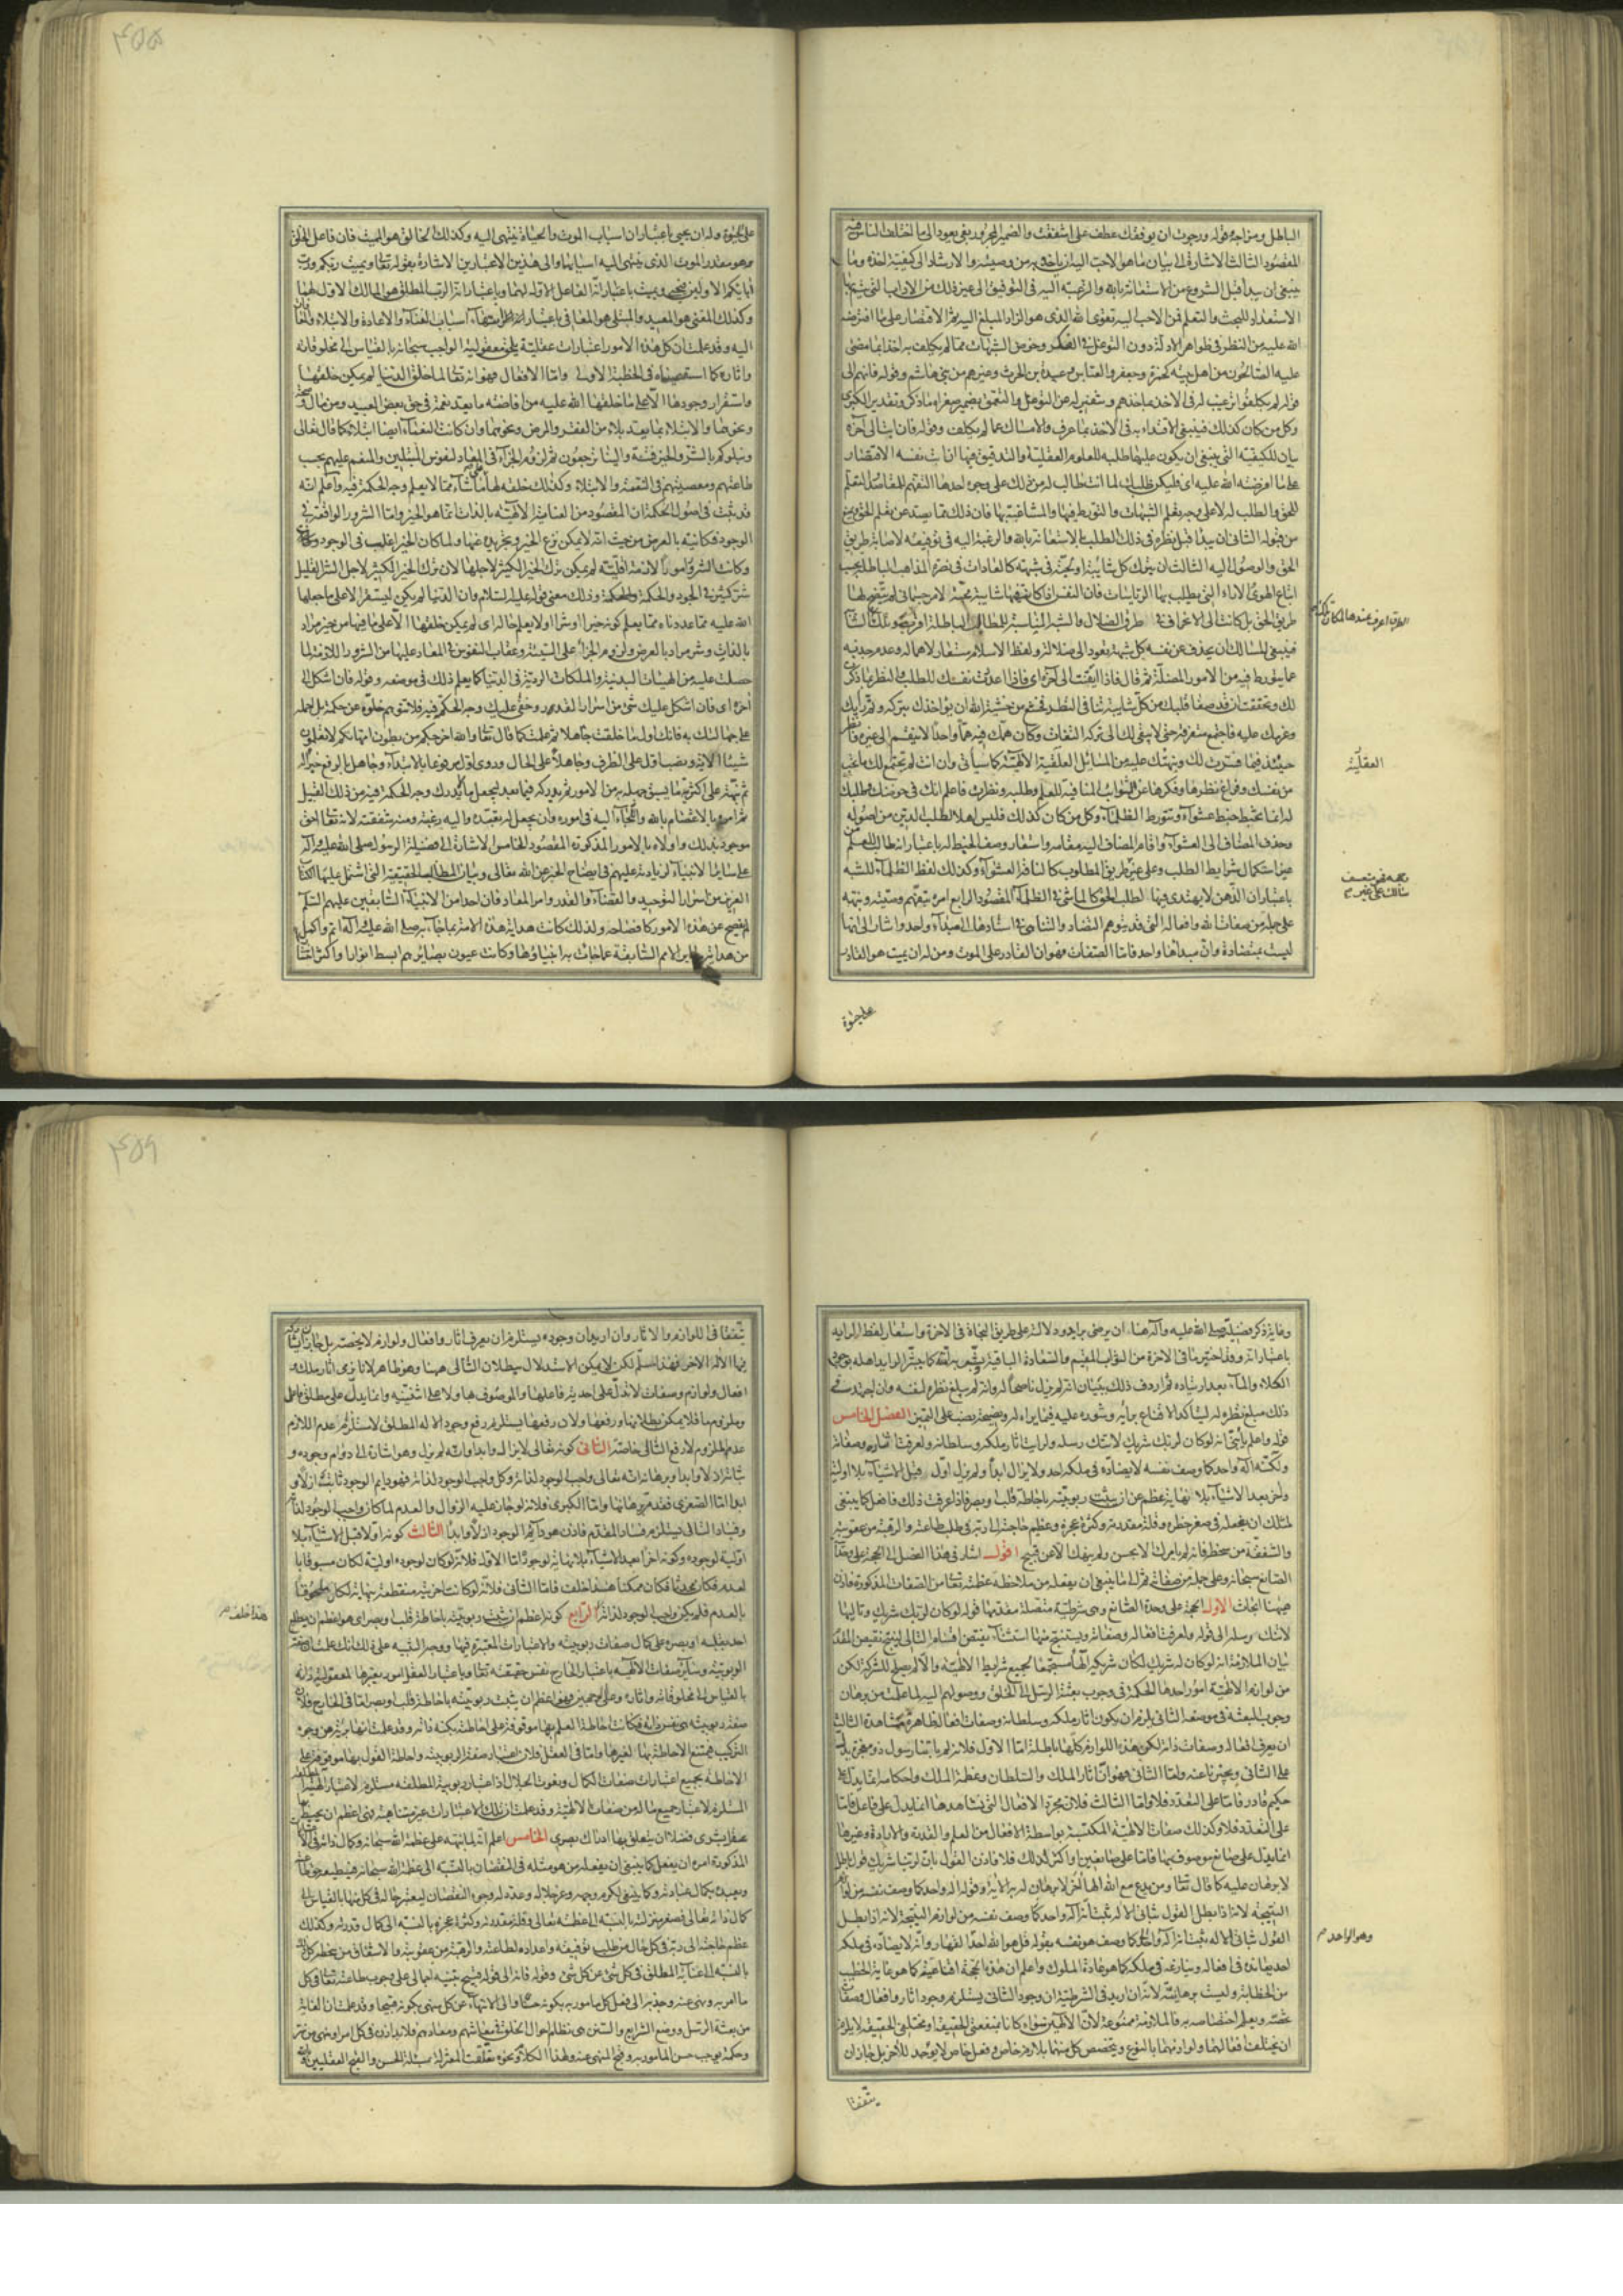 ۴۵۵
الباطل ومن اجله قوله ورجوت ان يوفقك عطف على اشفقت والضمير المجرور بقى يعود الى ما اختلف الناس فيه
المقصود الثالث الاشارة الى بيان ما هو الاحب اليه ان ياخذ به من وصيته والارشاد الى كيفية اخذه وما
ينبغى ان يبدأ قبل الشروع من الاستعانة بالله والرغبة اليه فى التوفيق الى غير ذلك من الاداب التى يتم بها
الاستعداد للبحث والتعلم فمن الاحب اليه تقوى الله الذى هو الزاد المبلغ اليه ثم الاقتصار على ما افترضه
الله عليه من النظر فى ظواهر الادلة دون التوغل فى الفكر وخوض الشبهات مما لم يكلف به اخذا بما مضى
عليه الصالحون من اهل بيته كحمزة وجعفر والعباس وعبيدة بن الحرث وغيرهم من بنى هاشم وقوله فانهم الى
قوله لم يكلفوا ترغيب له فى الاخذ بماخذهم
وكل من كان كذلك فينبغى الاقتداء به فى الاخذ بما عرف والامساك عما لم يكلف وقوله فان ابت الى آخره
بيان للكيفية التى ينبغى ان يكون عليها طلبه للعلوم العقلية والتدقيق فيها ان ابت نفسه الاقتصار
على ما افترضه الله عليه اى فليكن طلبك لما انت طالب له من ذلك على وجوه احدها التفهم للمقاصد لتعلم
للحق والطلب له لا على وجه تعلم الشبهات والتورط فيها والمشاغبة بها فان ذلك مما يصد عن تعلم الحق ويمنع
من قبوله الثانى ان يبدأ قبل نظره فى ذلك الطلب بالاستعانة بالله والرغبة اليه فى توفيقه لاصابة طريق
الحق والوصول اليه الثالث ان يترك كل شائبة او لجته فى شبهة كالعادات فى نصرة المذاهب الباطلة بحب
طريق الحق بل كانت الى الانحراف طرق الضلال والشبه المناسبة للمطالب الباطلة
فينبغى للسالك ان يحذف عن نفسه كل شبهة يعود الى ضلالة ولفظ الاسلام مستعار لاهماله وعدم جذبه
عما يتورط فيه من الامور المضلة ثم قال فاذا ايقنت الى آخره اى فاذا اعددت نفسك للطلب والنظر بما ذكر
لك وتحققت ان قد صفا قلبك من كل شايبة
وعزمك عليه فاجتمع متفرقه حتى لا يبقى لك الى تركه التفات وكان همك فيه هما واحدا لا ينقسم الى غيره فانظر
حينئذ فيما فسرت لك ونبهتك عليه من المسائل العقلية الالهية كما سيأتى وان انت لم يجتمع لك ما تحب
من نفسك وفراغ نظرها وفكرها عن الشوائب المنافية للعلم وطلبه ونظرت فاعلم انك فى خوضك وطلبك
له انما تخبط خبط عشواء وتتورط الظلماء وكل من كان كذلك فليس اهلا لطلب الدين من اصوله
وحذف المضاف الى العشواء واقام المضاف اليه مقامه واستعار وصف الخبط له باعتبار انه طالب للعلم من
غير استكمال شرايط الطلب وعلى غير طريق المطلوب كالناقة العشواء وكذلك لفظ الظلماء للشبه
باعتبار ان الذهن لا يهتدى فيها لطلب الحق كالماشى فى الظلماء المقصود الرابع امره بتفهم وصيته ونبهه
على جملة من صفات الله وافعاله التى قد يتوهم التضاد والتنافى فى اسنادها الى مبدأ واحد واشار الى انها
ليست بمتضادة وان مبدأها واحد فاما الصفات فهو ان القادر على الموت ومن له ان يميت هو القادر
العقلية
على حيوة
على حيوة وله ان يحيى باعتبار ان اسباب الموت والحياة ينتهى اليه وكذلك الخالق هو المميت فان فاعل الخلق
وهو مقدر الموت الذى ينتهى اليه اسبابهما والى هذين الاعتبارين الاشارة بقوله تعالى ويميت ربكم ورب
آبائكم الاولين فيحيى ويميت باعتبار انه الفاعل الاول لهما وباعتبار انه الرب المطلق هو المالك الاول لهما
وكذلك المفنى هو المعيد والمبتلى هو المعافى باعتبار انتهاء اسباب الفناء والاعادة والابتلاء والمعافاة
اليه وقد علمت ان كل هذه الامور اعتبارات عقلية يلحق معقولية الواجب سبحانه بالقياس الى مخلوقاته
واثاره كما استقصيناه فى الخطبة الاولى واما الافعال فهو انه تعالى لما خلق الدنيا لم يمكن خلقها
واستقرار وجودها الا على ما خلقها الله عليه من افاضة ما يعد نعمة فى حق بعض العبيد ومن مال وصحة
ونحوهما والابتلاء بما يعد بلاء من الفقر والمرض ونحوهما وان كانت النعماء ايضا ابتلاء كما قال تعالى
ونبلوكم بالشر والخير فتنة والينا ترجعون ثم لزوم الجزاء فى المعاد لنفوس المبتلين والمنعم عليهم بحسب
طاعتهم ومعصيتهم فى النعمة والابتلاء وكذلك خلقه لها على ما شاء مما لا يعلم وجه الحكمة فيه واعلم انه
قد ثبت فى اصول الحكمة ان المقصود من العناية الالهية بالذات انما هو الخير واما الشرور الواقعة فى
الوجود فكائنة بالعرض من حيث انه لا يمكن نزع الخير وتجريده عنها ولما كان الخير اغلب فى الوجود
وكانت الشرور امورا لازمة اقلية لم يمكن ترك الخير الكثير لاجلها لان ترك الخير الكثير لاجل الشر القليل
شر كثير فى الجود والحكمة وذلك معنى قوله عليه السلام وان الدنيا لم يكن ليستقر الا على ما جعلها
الله عليه مما عددناه ومما يعلم كونه خيرا او شرا او لا يعلم حاله اى لم يمكن خلقها الا على ما فيها من خير مراد
بالذات وشر مراد بالعرض ولزوم الجزاء على السيئة وعقاب النفوس فى المعاد عليها من الشرور اللازمة لما
حصلت عليه من الهيئات البدنية والملكات الردية فى الدنيا كما يعلم ذلك فى موضعه وقوله فان اشكل الى
آخره اى فان اشكل عليك شئ من اسرار القدر وخفى عليك وجه الحكمة فيه فلا تتوهم خلوه عن حكمة بل احمله
على جهالتك به فانك اول ما خلقت جاهلا ثم علمت كما قال تعالى والله اخرجكم من بطون امهاتكم لا تعلمون
شيئا الاية ونصب اول على الظرف وجاهلا على الحال وروى اول مرفوعا بالابتداء وجاهل بالرفع خبرا له
ثم نبهه على اكثرية ما يسبق جهله به من الامور ثم يدركه فيما بعد ليجعل ما لا يدرك وجه الحكمة فيه من ذلك القبيل
ثم امره بالاعتصام بالله والتجاء اليه فى اموره وان يجعل له تعبده واليه رغبته ومنه شفقته لانه تعالى احق
موجود بذلك واولاه بالامور المذكورة المقصود الخامس الاشارة الى فضيلة الرسول صلى الله عليه وآله
على سائر الانبياء لزيادته عليهم فى ايضاح الخبر عن الله تعالى وبيان المطالب الحقيقية التى اشتمل عليها الكتاب
العزيز من اسرار التوحيد والقضاء والقدر وامر المعاد فان احدا من الانبياء السابقين عليهم السلام
لم يفصح عن هذه الامور كافصاحه ولذلك كانت هداية هذه الامة مما جاء به صلى الله عليه وآله اتم واكمل
من هداية ساير الامم السابقة بما جاءت به انبياؤها وكانت عيون بصايرهم ابسط انوارا واكثر انتشارا
۴۵۶
وغاية ذكر فضيلته صلى الله عليه وآله هنا ان يرضى برايدا ودلالته على طريق النجاة فى الاخرة واستعار لفظ الرايد له
باعتبار انه قد اختبر ما فى الاخرة من الثواب المقيم والسعادة الباقية وبشر به امته كما يبشر الرايد اهله بوجود
الكلاء والماء بعد ارتياده ثم اردف ذلك ببيان انه لم يزل ناصحا له وانه لم يبلغ نظره لنفسه وان اجتهد فى
ذلك مبلغ نظره له ليتأكد الاقناع برأيه ومشوره عليه فيما يراه له ونصيحة نصب على التمييز الفصل الخامس
قوله واعلم يا بنى انه لو كان لربك شريك لاتتك رسله ولرايت اثار ملكه وسلطانه ولعرفت افعاله وصفاته
ولكنه اله واحد كما وصف نفسه لا يضاده فى ملكه احد ولا يزول ابدا ولم يزل اول قبل الاشياء بلا اولية
واخر بعد الاشياء بلا نهاية عظم عن ان تثبت ربوبيته باحاطة قلب او بصر فاذا عرفت ذلك فافعل كما ينبغى
لمثلك ان يفعله فى صغر خطره وقلة مقدرته وكثرة عجزه وعظيم حاجته الى ربه فى طلب طاعته والرهبة من عقوبته
والشفقة من سخطه فانه لم يأمرك الا بحسن ولم ينهك الا عن قبيح اقول اشار فى هذا الفصل الى الحجة على وحدانية
الصانع سبحانه وعلى جملة من صفاته ثم الى ما ينبغى ان يفعله من ملاحظة عظمته تعالى من الصفات المذكورة فاذن
هيهنا ابحاث الاول الحجة على وحدة الصانع وهى شرطية متصلة مقدمها قوله لو كان لربك شريك وتاليها
لاتتك رسله الى قوله ولعرفت افعاله وصفاته ويستنتج منها استثناء نقيض اقسام التالى لينتج نقيض المقدم
بيان الملازمة انه لو كان له شريك لكان شريكه الها مستجمعا لجميع شرايط الالهية والا لم يصلح للشركة لكن
من لوازم الالهية امور احدها الحكمة فى وجوب بعثة الرسل الى الخلق ووصولهم اليه لما علمت من برهان
وجوب البعثة فى موضعه الثانى يلزم ان يكون اثار ملكه وسلطانه وصفات افعاله ظاهرة مشاهدة الثالث
ان يعرف افعاله وصفات ذاته لكن هذه اللوازم كلها باطلة اما الاول فلانه لم يأتنا رسول ذو معجزة يدل
على الثانى ويخبرنا عنه واما الثانى فهو ان اثار الملك والسلطان وعظمة الملك واحكامه انما يدل على
حكيم قادر فاما على التعدد فلا واما الثالث فلان مجرد الافعال التى نشاهدها انما يدل على فاعل فاما
على التعدد فلا وكذلك صفات الالهية المكتسبة بواسطة الافعال من العلم والقدرة والارادة وغيرها
انما يدل على صانع موصوف بها فاما على صانعين او اكثر كذلك فلا فاذن القول بان لربنا شريك قول باطل
لا برهان عليه كما قال تعالى ومن يدع مع الله الها اخر لا برهان له به الاية وقوله اله واحد كما وصف نفسه من لوازم
النتيجة لانه اذا بطل القول بثانى الاله ثبت انه اله واحد كما وصف نفسه من لوازم النتيجة لانه اذا بطل
القول بثانى الاله ثبت انه اله واحد كما وصف هو نفسه بقوله قل هو الله احد القهار وانه لا يضاده فى ملكه
احد يعانده فى افعاله وينازعه فى ملكه كما هو عادة الملوك واعلم ان هذه الحجة اقناعية كما هو غاية الخطيب
من الخطابة وليست برهانية لانه ان اريد فى الشرطية ان وجود الثانى يستلزم وجود اثار وافعال وصفات
تخصه ويعلم اختصاصه به فالملازمة ممنوعة لان الالهين سواء كانا متفقى الحقيقة او مختلفى الحقيقة لا يلزم
ان يختلف افعالهما ولوازمهما بالنوع ويتخصص كل منهما بلازم خاص وفعل خاص لا يوجد للاخر بل جاز ان
وهو الواحد
يتفقا
يتفقا فى اللوازم والاثار وان اريد ان وجوده يستلزم ان يعرف اثار وافعال ولوازم لا يخصه بل جاز ان يشاركه
فيها الاله الاخر فهذا مسلم لكن لا يمكن الاستدلال ببطلان التالى هيهنا وهو ظاهر لانا نرى اثار ملك و
افعال ولوازم وصفات لا تدل على احدية فاعلها والموصوف بها ولا على اثنينيته وانما يدل على مطلق فاعل
وملزوم ما فلا يمكن بطلانها ورفعها ولان رفعها يستلزم رفع وجود الاله المطلق لاستلزام عدم اللازم
عدم الملزوم لا رفع الثانى خاصة الثانى كونه تعالى لا يزال ابدا وانه لم يزل وهو اشارة الى دوام وجوده و
ثباته ازلا وابدا وبرهانه انه تعالى واجب الوجود لذاته وكل واجب الوجود لذاته فهو دايم الوجود ثابته ازلا و
ابدا اما الصغرى فقد مر برهانها واما الكبرى فلانه لو جاز عليه الزوال والعدم لما كان واجب الوجود لذاته
وفساد التالى يستلزم فساد المقدم فاذن هو دايم الوجود ازلا وابدا الثالث كونه اولا قبل الاشياء بلا
اولية لوجوده وكونه اخرا بعد الاشياء بلا نهاية لوجوده اما الاول فلانه لو كان لوجوده اولية لكان مسبوقا با
لعدم فكان محدثا فكان ممكنا هذا خلف فاما الثانى فلانه لو كانت اخريته منقطعة بنهاية لكان ملحوقا
بالعدم فلم يكن واجب الوجود لذاته الرابع كونه اعظم ان تثبت ربوبيته باحاطة قلب او بصر اى هو اعظم ان يطلع
احد بقلبه او بصره على كمال صفات ربوبيته والاعتبارات المعتبرة فيها ووجه التنبيه على ذلك انك علمت ان صفة
الربوبية وساير صفات الالهية باعتبار الخارج نفس حقيقته تعالى وباعتبار العقل امور يعتبرها لمعقولية ذاته
بالقياس الى مخلوقاته واثاره وعلى الوجهين فهو اعظم ان يثبت ربوبيته باحاطة قلب او بصر اما فى الخارج فلان
صفة ربوبيته هى نفس ذاته فكانت احاطة العلم بها موقوفة على احاطته بكنه ذاته وقد علمت انها بريئة من وجوه
التركيب فيمتنع الاحاطة بها لغيرها واما فى العقل فلان اعتبار صفة الربوبية واحاطة القول بها موقوف على
الاحاطة بجميع اعتبارات صفات الكمال ونعوت الجلال اذ اعتبار ربوبيته المطلقة مستلزم لاعتبار الهيته
المستلزمة لاعتبار جميع ماله من صفات الالهية وقد علمت ان تلك الاعتبارات غير متناهية فهى اعظم ان يحيط
عقل بشرى فضلا ان يتعلق بها ادراك بصرى الخامس اعلم انه لما نبهه على عظمة الله سبحانه وكمال ذاته فى
المذكورة امره ان يفعل كما ينبغى ان يفعله من هو مثله فى النقصان بالنسبة الى عظمة الله سبحانه فيطيعه
ويعبده بكمال عبادته وكما ينبغى لكرم وجهه وعز جلاله وعدد له وجوه النقصان ليعتبر حاله فى كل منها بالقياس الى
كمال ذاته تعالى فصغر منزلته بالنسبة الى عظمته تعالى وقلة مقدرته وكثرة عجزه بالنسبة الى كمال قدرته وكذلك
عظم حاجته الى ربه فى كل حال من طلب توفيقه واعداده لطاعته والرهبة من عقوبته والاشفاق من سخطه كل ذلك
بالنسبة الى غنائه المطلق فى كل شئ عن كل شئ وقوله فانه الى قوله قبيح تنبيه اجمالى على وجوب طاعته تعالى فى كل
ما امر به ونهى عنه وجذبه الى فعل كل مأمور به بكونه حسنا والى الانتهاء عن كل منهى بكونه قبيحا وقد علمت ان الغاية
من بعثة الرسل ووضع الشرايع والسنن هى نظام احوال الخلق فى معاشهم ومعادهم فلا بد اذن فى كل امر او نهى من سر
وحكمة يوجب حسن المأمور به وقبح المنهى عنه ولهذا الكلام ونحوه تعلقت المعتزلة بمسئلة الحسن والقبح العقليين
هذا خلف